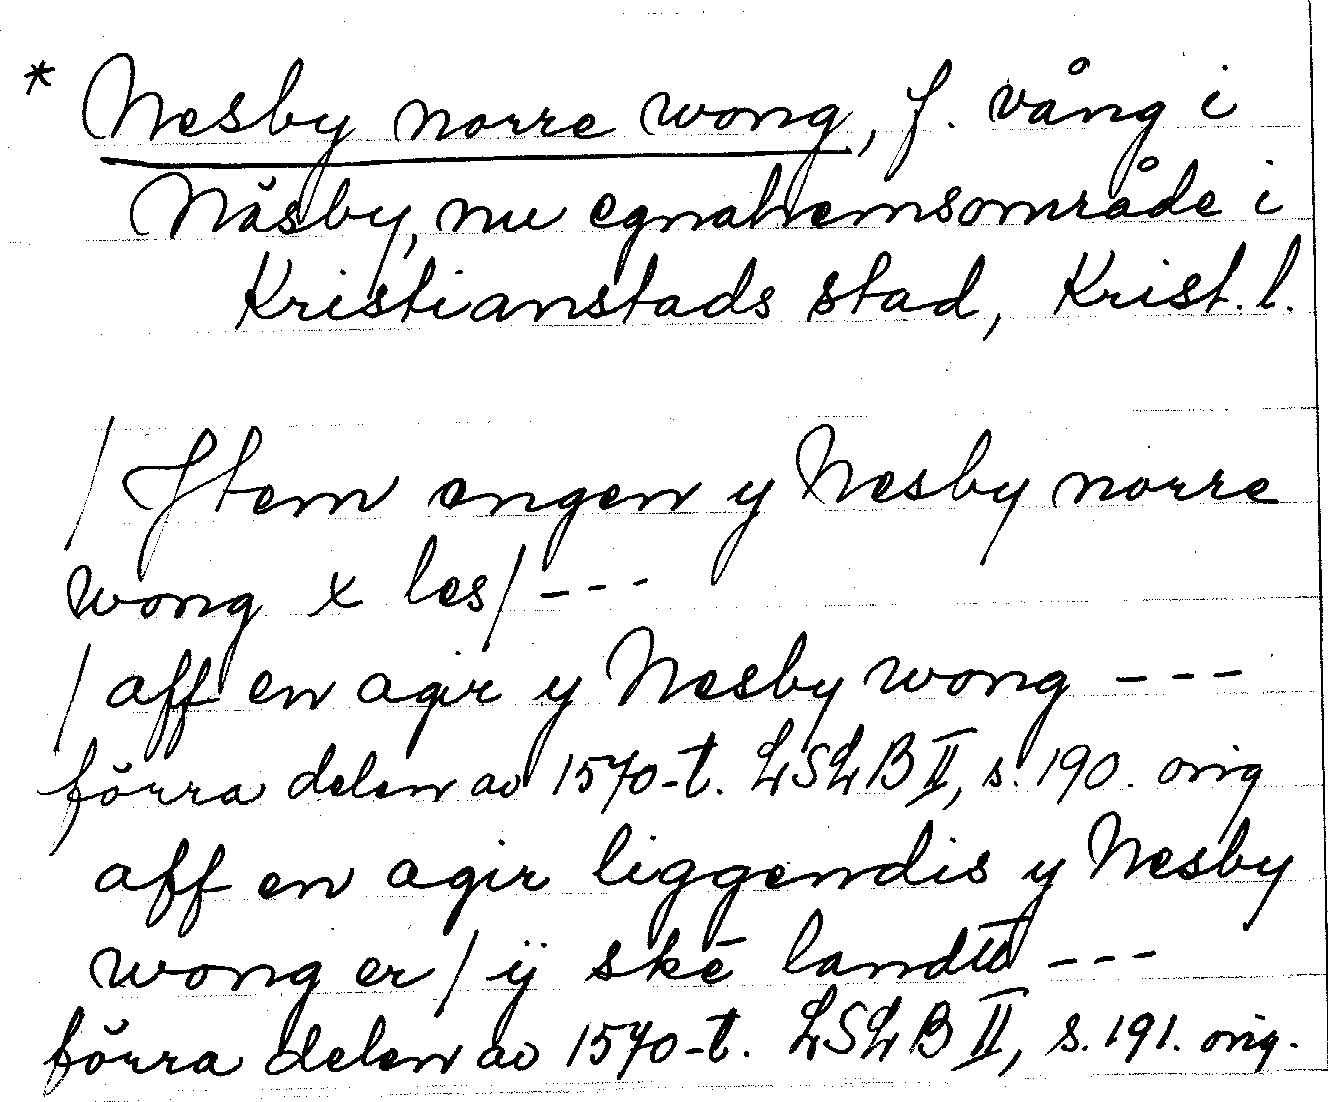 * Nesby norre wong, f. vång i
Näsby, nu egnahemsområde i
Kristianstads stad, Krist. l.
/ Jtem engen y Nesby norre
wong x les / ---
/ aff en agir y Nesby wong ---
förra delen av 1570-t. LSLB II, s. 190. orig
aff en agir liggendis y Nesby
wong er / ÿ skē
förra delen av 1570-t. LSLB II, s. 191. orig.